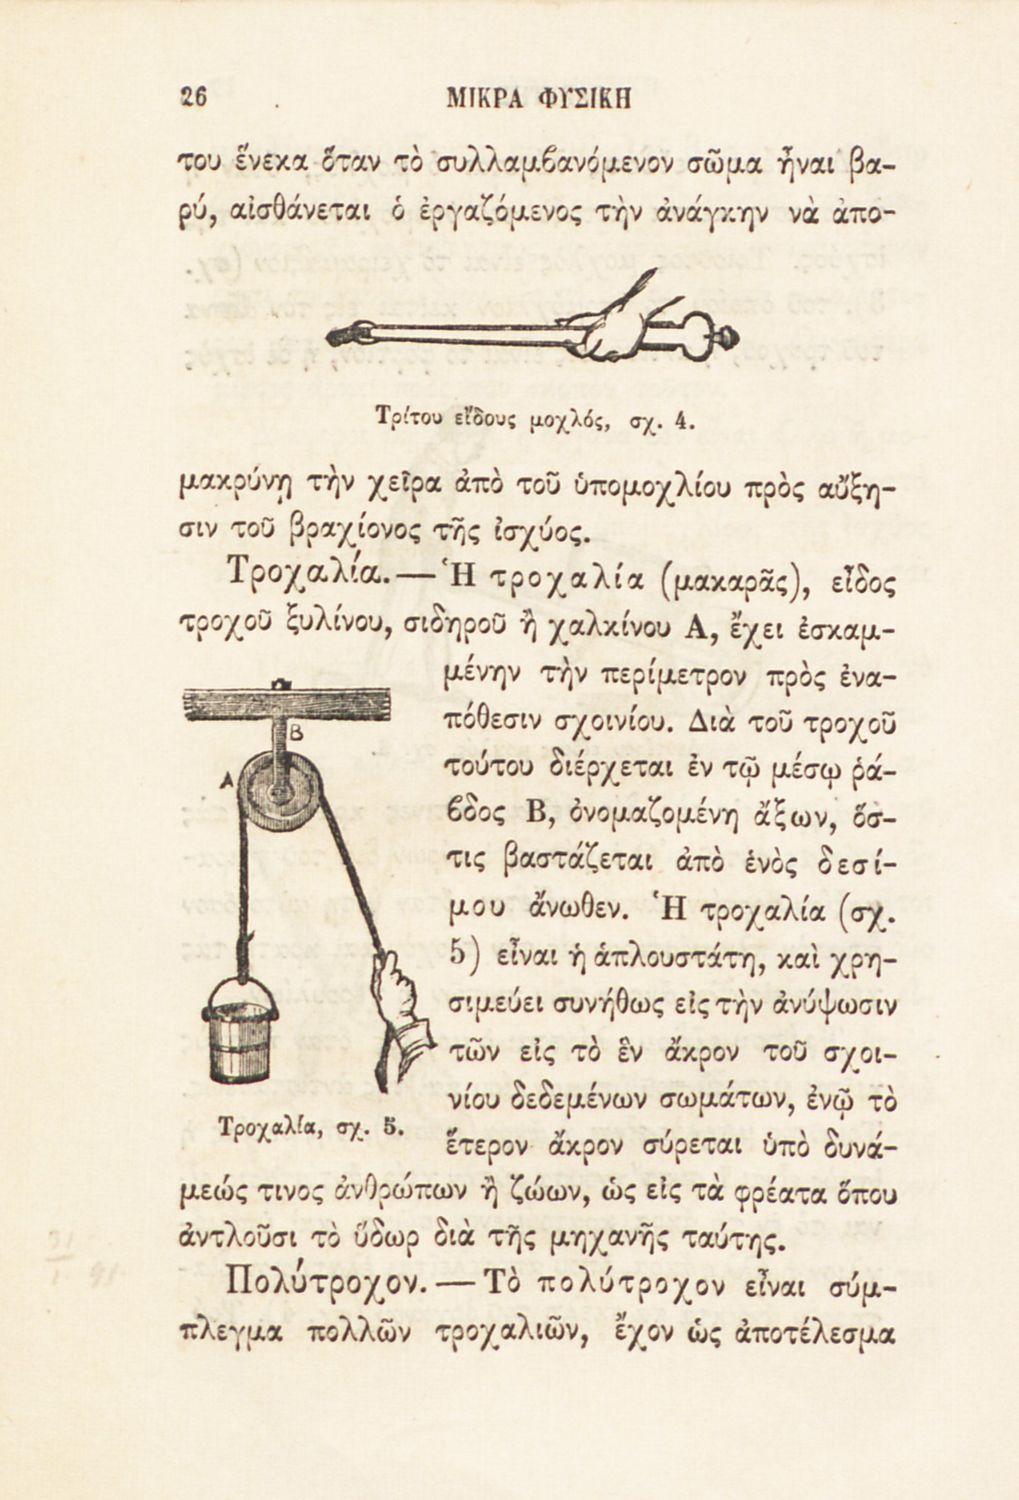 26 ΜΙΚΡΑ ΦΥΣΙΚΗ
του ἕνεκα ὅταν τὸ συλλαμϐανόμενον σῶμα ἦναι βα-
ρύ, αἰσθάνεται ὁ ἐργαζόμενος τὴν ἀνάγκην νὰ ἀπο-
Τρίτου εἴδους μοχλός, σχ. 4.
μακρύνῃ τὴν χεῖρα ἀπὸ τοῦ ὑπομοχλίου πρὸς αὔξη-
σιν τοῦ βραχίονος τῆς ἰσχύος.
Τροχαλία. — Ἡ τροχαλία (μακαρᾶς), εἶδος
τροχοῦ ξυλίνου, σιδηροῦ ἢ χαλκίνου Α, ἔχει ἐσκαμ-
μένην τὴν περίμετρον πρὸς ἐνα-
πόθεσιν σχοινίου. Διὰ τοῦ τροχοῦ
τούτου διέρχεται ἐν τῷ μέσῳ ῥά-
ϐδος Β, ὀνομαζομένη ἄξων, ὅσ-
τις βαστάζεται ἀπὸ ἑνὸς δεσί-
μου ἄνωθεν. Ἡ τροχαλία (σχ.
5) εἶναι ἡ ἁπλουστάτη, καὶ χρη-
σιμεύει συνήθως εἰς τὴν ἀνύψωσιν
τῶν εἰς τὸ ἓν ἄκρον τοῦ σχοι-
νίου δεδεμένων σωμάτων, ἐνῷ τὸ
ἕτερον ἄκρον σύρεται ὑπὸ δυνά-
B
A
Τροχαλία, σχ. 5.
μεώς τινος ἀνθρώπων ἢ ζώων, ὡς εἰς τὰ φρέατα ὅπου
ἀντλοῦσι τὸ ὕδωρ διὰ τῆς μηχανῆς ταύτης.
Πολύτροχον. — Τὸ πολύτροχον εἶναι σύμ-
πλεγμα πολλῶν τροχαλιῶν, ἔχον ὡς ἀποτέλεσμα